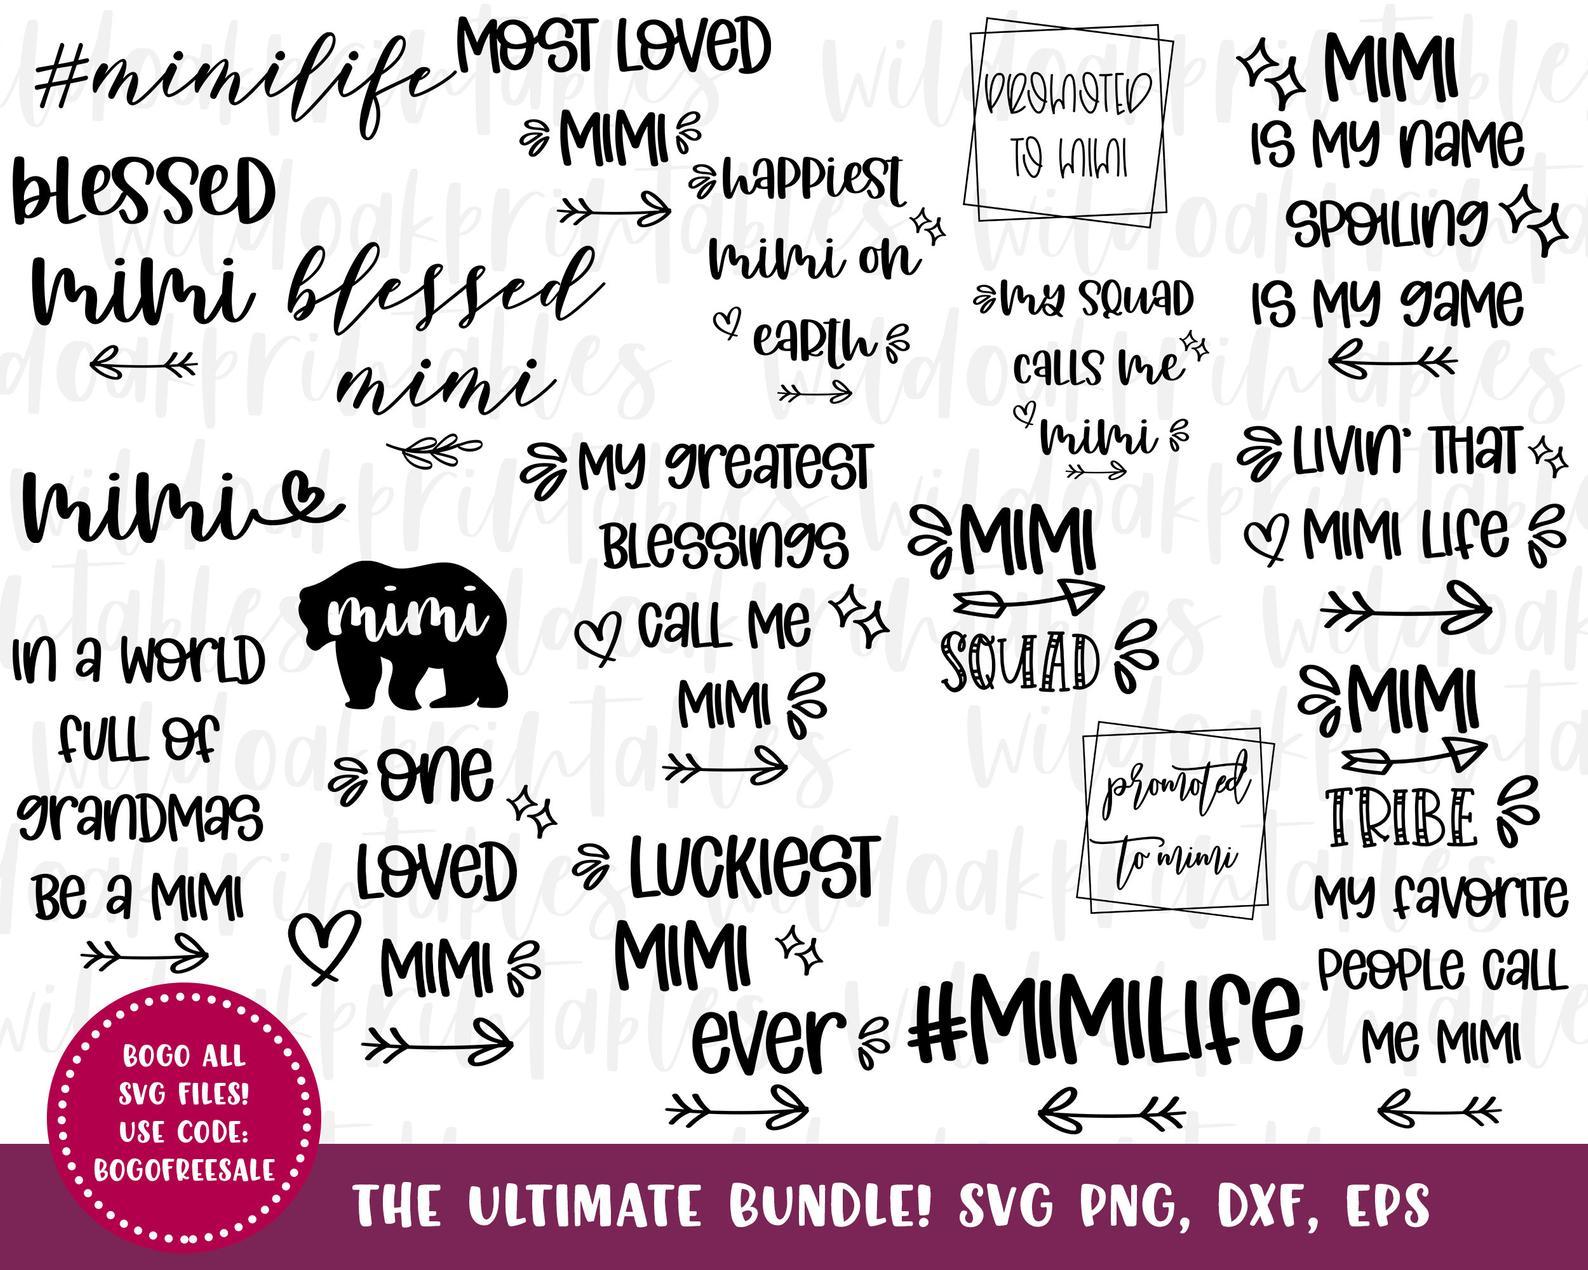 #mimilife
MOST LOVED
MIMI
blessed
mimi
blessed
mimi
happiest
mimi on
earth
PROMOTED
TO MIMI
MIMI
IS MY NAME
SPOILING
IS MY GAME
my squad
calls me
mimi
mimi
mimi
MY GREATEST
BLESSINGS
CALL ME
MIMI
MIMI
SQUAD
LIVIN' THAT
MIMI LIFE
IN A WORLD
FULL OF
GRANDMAS
BE A MIMI
ONE
LOVED
MIMI
LUCKIEST
MIMI
EVER
promoted
to mimi
MIMI
TRIBE
#MIMILIFE
MY FAVORITE
PEOPLE CALL
ME MIMI
BOGO ALL
SVG FILES!
USE CODE:
BOGOFREESALE
THE ULTIMATE BUNDLE! SVG PNG, DXF, EPS
wildoakprintables